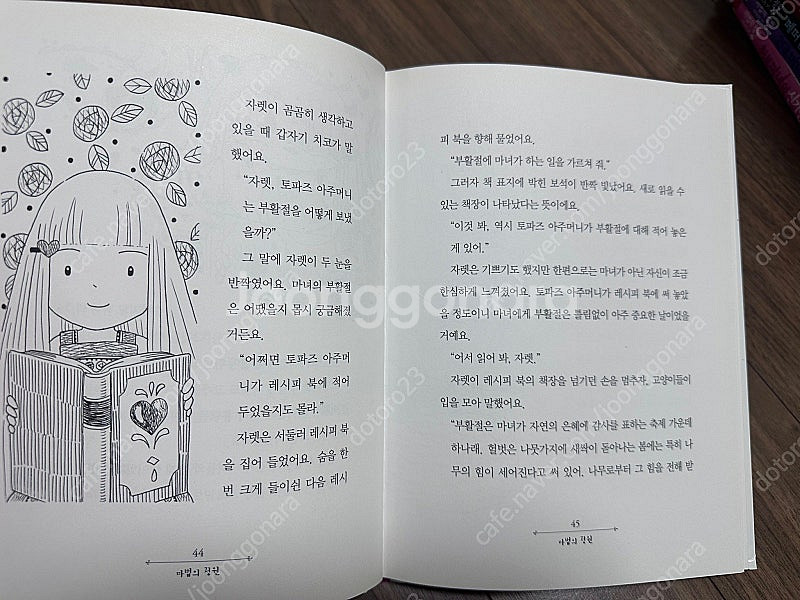 자렛이 곰곰히 생각하고
있을 때 갑자기 치코가 말
했어요.
“자렛, 토파즈 아주머니
는 부활절을 어떻게 보냈
을까?”
그 말에 자렛이 두 눈을
반짝였어요. 마녀의 부활절
은 어땠을지 몹시 궁금해졌
거든요.
“어쩌면 토파즈 아주머
니가 레시피 북에 적어
두었을지도 몰라.”
자렛은 서둘러 레시피 북
을 집어 들었어요. 숨을 한
번 크게 들이쉰 다음 레시
44
마법의 정원
피 북을 향해 물었어요.
“부활절에 마녀가 하는 일을 가르쳐 줘.”
그러자 책 표지에 박힌 보석이 반짝 빛났어요. 새로 읽을 수
있는 책장이 나타났다는 뜻이에요.
“이것 봐, 역시 토파즈 아주머니가 부활절에 대해 적어 놓은
게 있어.”
자렛은 기쁘기도 했지만 한편으로는 마녀가 아닌 자신이 조금
한심하게 느껴졌어요. 토파즈 아주머니가 레시피 북에 써 놓았
을 정도이니 마녀에게 부활절은 틀림없이 아주 중요한 날이었을
거예요.
“어서 읽어 봐, 자렛.”
자렛이 레시피 북의 책장을 넘기던 손을 멈추자, 고양이들이
입을 모아 말했어요.
“부활절은 마녀가 자연의 은혜에 감사를 표하는 축제 가운데
하나래. 헐벗은 나뭇가지에 새싹이 돋아나는 봄에는 특히 나
무의 힘이 세어진다고 써 있어. 나무로부터 그 힘을 전해 받
45
마법의 정원
joonggonara
dotoro23
cafe.naver.com/joonggonara